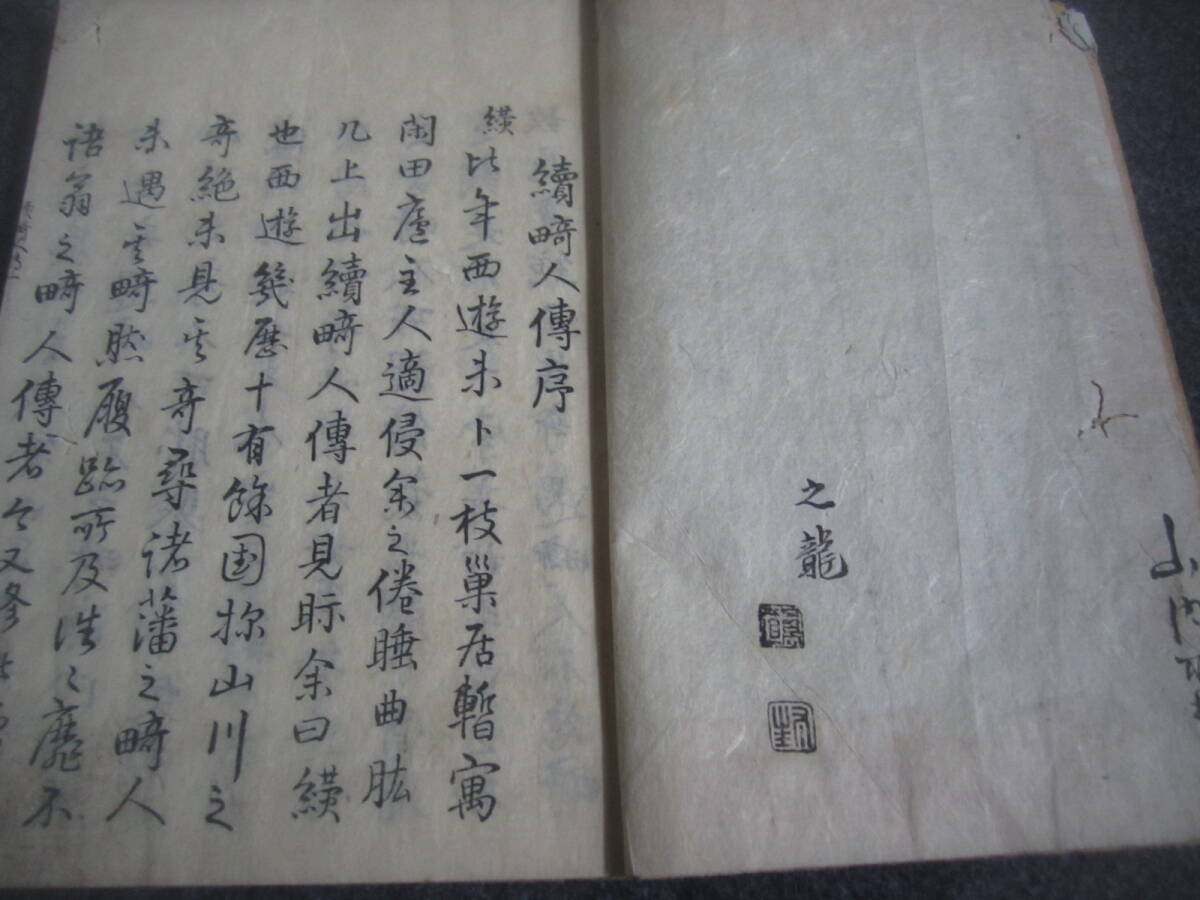 之龍
續畸人傳序
纉比年西遊未卜一枝巢居暫寓
閑田廬主人適侵余之倦睡曲肱
几上出續畸人傳者見眎余曰纉
也西遊幾歷十有餘国探山川之
奇絶未見其奇尋諸藩之畸人
未遇其畸然履跡所及浩〻靡不
語翁之畸人傳者今又